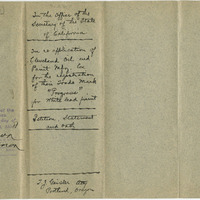 In the Office of the
Secretary of the State
of California
In re application of
Cleveland Oil and
Paint Mfg. Co.
for the registration
of their Trade Mark
for White Lead paint
Petition, Statement
and Oath
T. J. Geisler Atty
Portland, Oregon